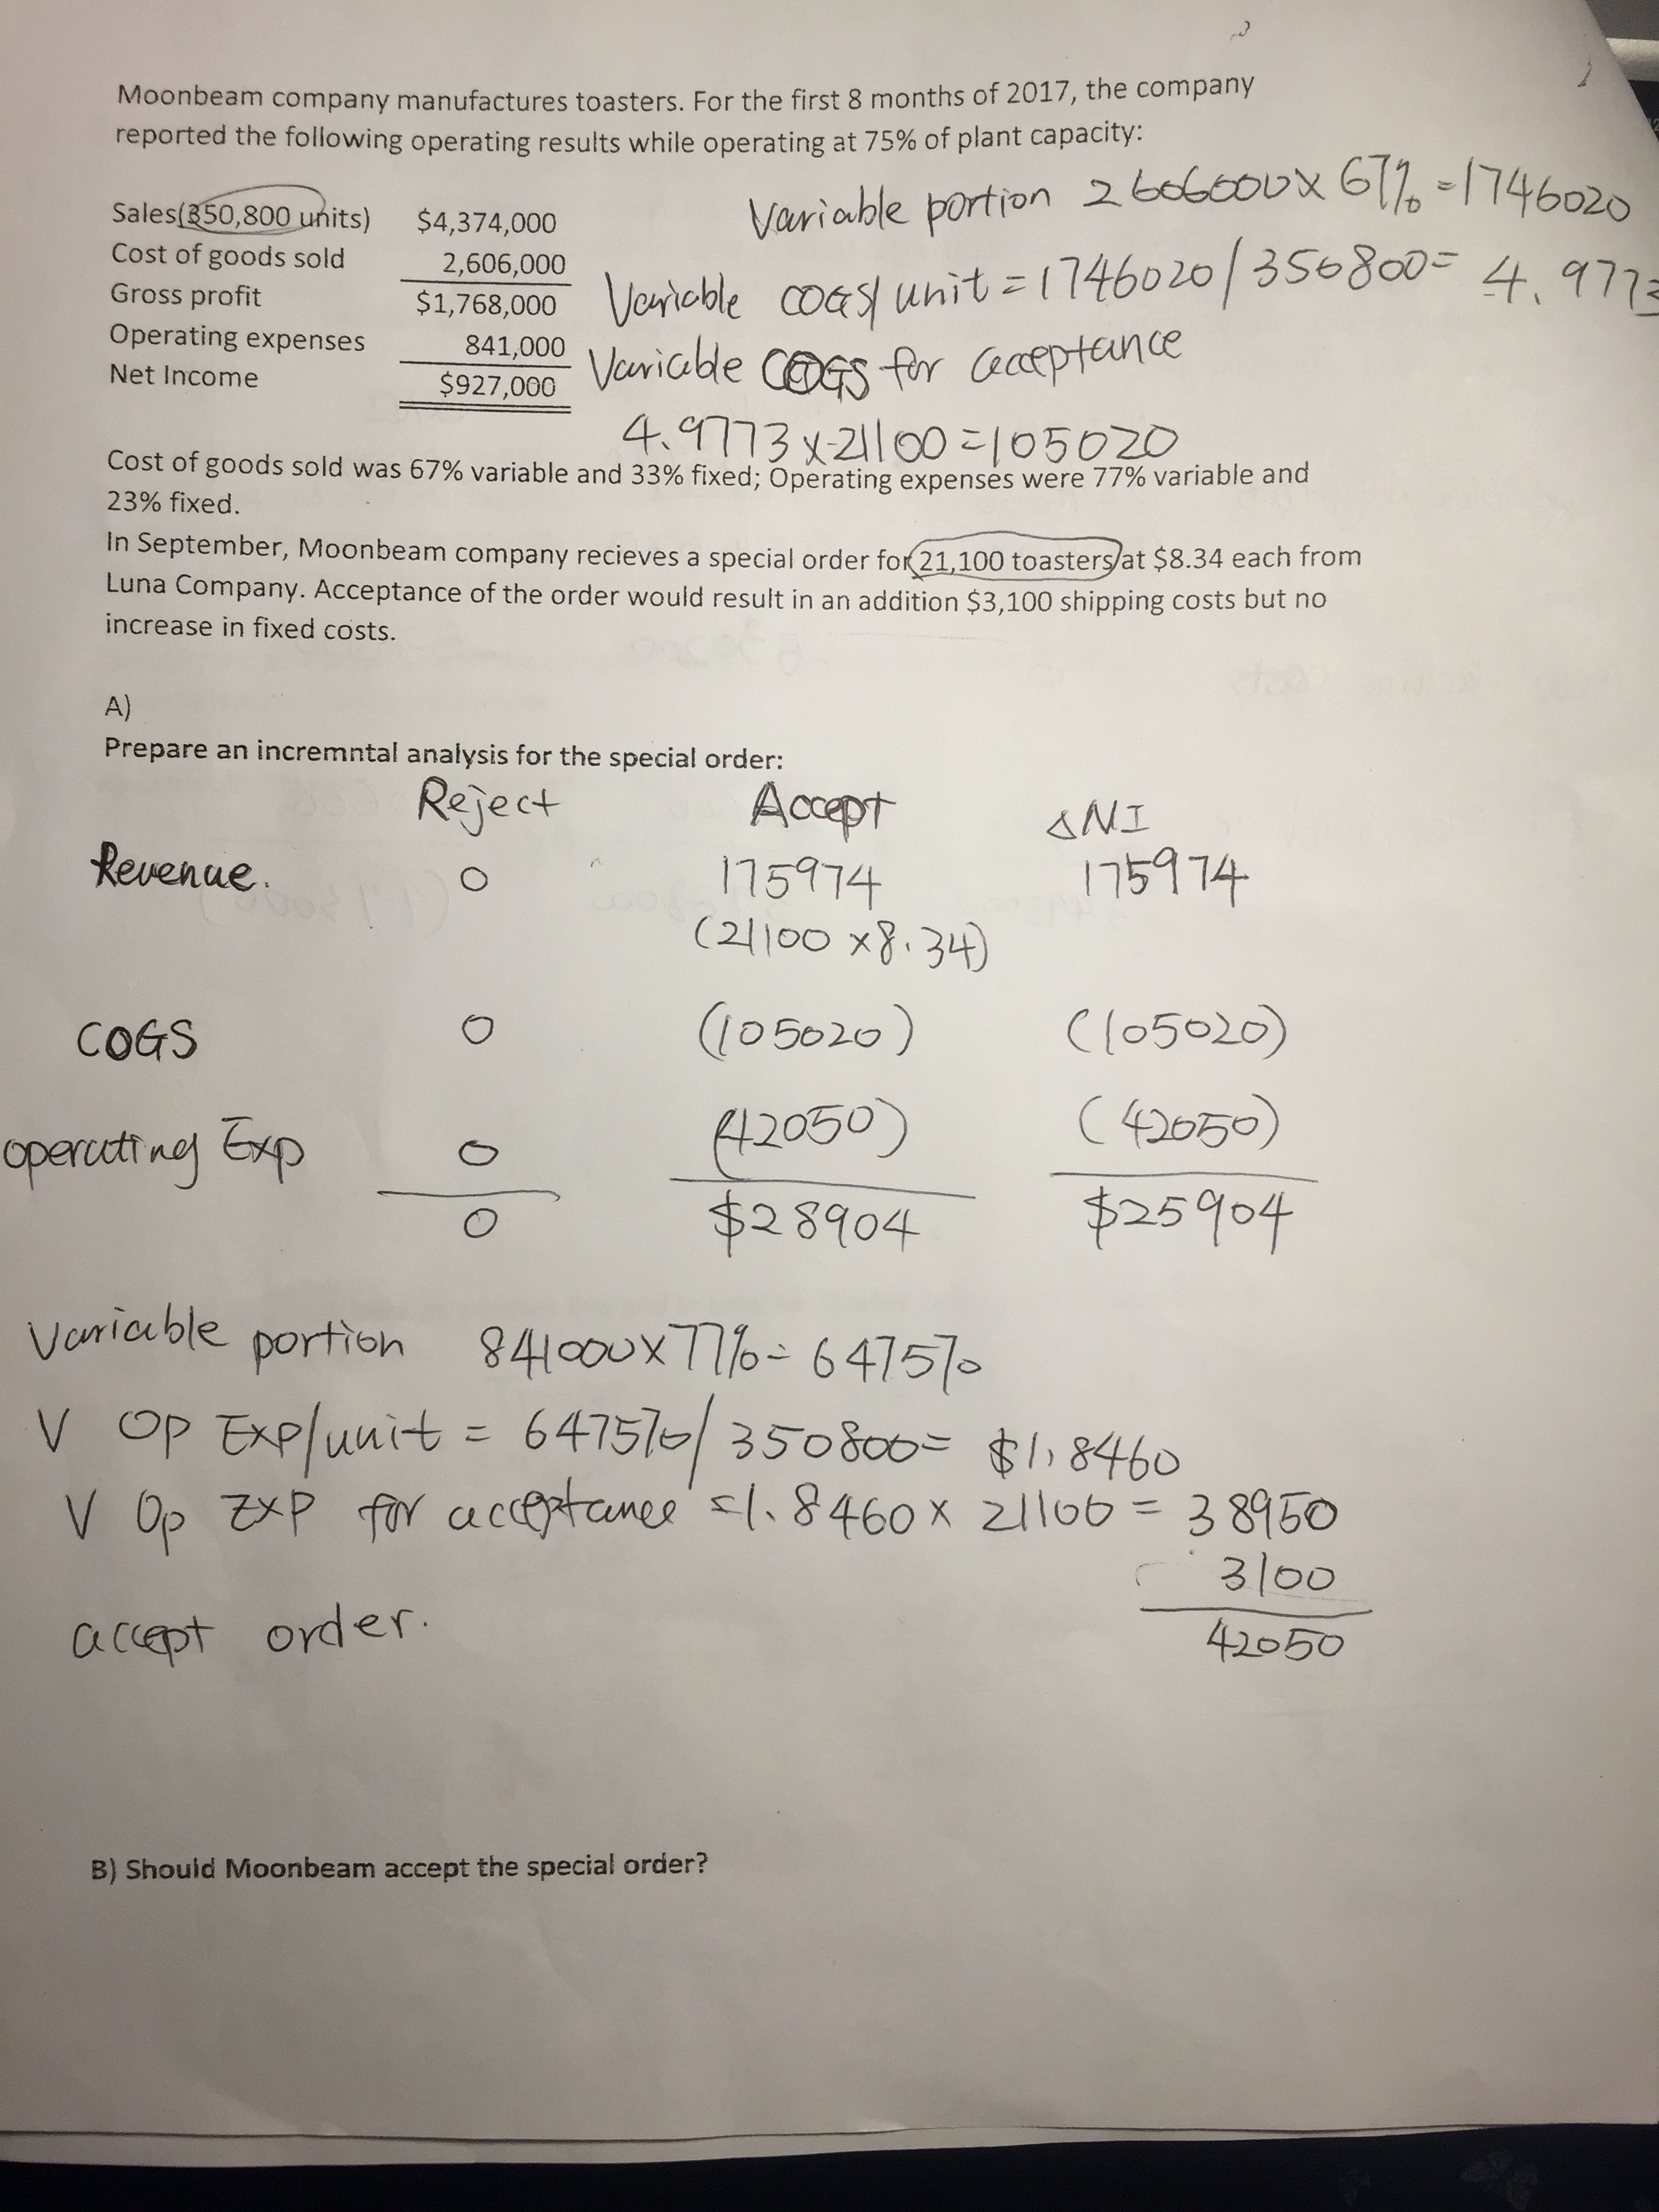 Moonbeam company manufactures toasters. For the first 8 months of 2017, the company
reported the following operating results while operating at 75% of plant capacity:
Variable portion 2606000 x 67% = 1746020
Sales(350,800 units) $4,374,000
Cost of goods sold 2,606,000
Variable COGS/unit = 1746020/350800 = 4.9773
Gross profit $1,768,000
Operating expenses 841,000
Variable COGS for acceptance
Net Income $927,000
4.9773 x 21100 = 105020
Cost of goods sold was 67% variable and 33% fixed; Operating expenses were 77% variable and
23% fixed.
In September, Moonbeam company recieves a special order for 21,100 toasters at $8.34 each from
Luna Company. Acceptance of the order would result in an addition $3,100 shipping costs but no
increase in fixed costs.
A)
Prepare an incremntal analysis for the special order:
Reject Accept ΔNI
Revenue. 0 175974 175974
(21100 x 8.34)
COGS 0 (105020) (105020)
operating Exp 0 (42050) (42050)
0 $28904 $25904
Variable portion 841000 x 77% = 647570
V Op Exp/unit = 647570/350800 = $1.8460
V Op Exp for acceptance = 1.8460 x 21100 = 38950
3100
accept order.
42050
B) Should Moonbeam accept the special order?